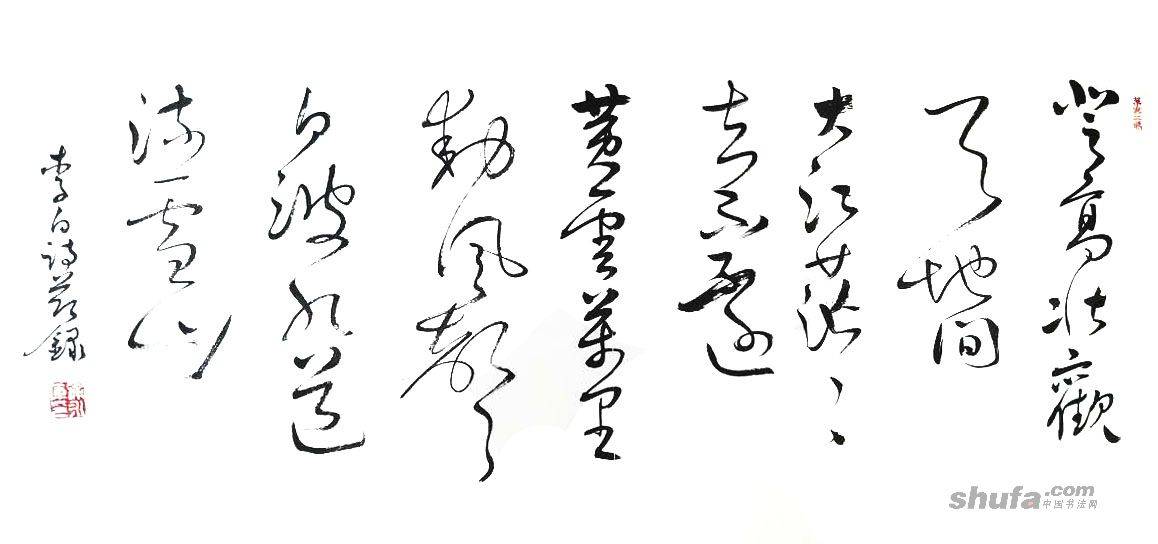 登高壯觀
天地間
大江茫〻
去不還
黃雲萬里
動風聲
白波九道
流雪山
李白詩 錄
shufa.com
中国书法网